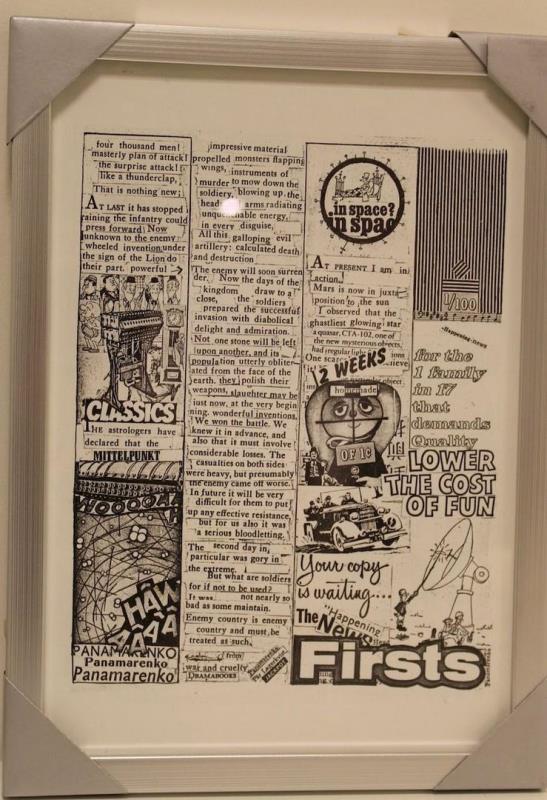 four thousand men!
masterly plan of attack!
the surprise attack!
like a thunderclap,
That is nothing new;
AT LAST it has stopped
raining the infantry could
press forward! Now
unknown to the enemy
wheeled invention under
the sign of the Lion do
their part. powerful
CLASSICS
THE astrologers have
declared that the
MITTELPUNKT
WOOOAH
HÂW
PANAMARENKO
Panamarenko
Panamarenko
impressive material
propelled monsters flapping
wings, instruments of
murder to mow down the
soldiery, blowing up the
arms radiating
energy,
in every disguise,
All this galloping evil
artillery: calculated death
and destruction
The enemy will soon surren
der. Now the days of the
kingdom draw to a
close, the soldiers
prepared the successful
invasion with diabolical
delight and admiration.
Not one stone will be left
upon another, and its
population utterly obliter-
ated from the face of the
earth. they polish their
weapons, slaughter may be
just now, at the very begin
ning. wonderful inventions,
We won the battle. We
knew it in advance, and
also that it must involve
considerable losses. The
casualties on both sides
were heavy, but presumably
the enemy came off worse.
In future it will be very
difficult for them to put
up any effective resistance,
but for us also it was
a serious bloodletting.
The second day in
particular was gory in
the extreme.
But what are soldiers
for if not to be used?
It was not nearly so
bad as some maintain.
Enemy country is enemy
country and must be
treated as such.
from
war and cruelty
DRAMABOOKS
in space?
in spac
AT PRESENT I am in
action.
Mars is now in juxta
position to the sun
I observed that the
ghastliest glowing star
a quasar, CTA-102, one of
the new mysterious objects,
had irregular light
One scarc
2 WEEKS
homemade
OF 1¢
Your copy
is waiting....
The "Happening
News
Firsts
1/100
Happening-news
for the
1 family
in 17
that
demands
Quality
LOWER
THE COST
OF FUN